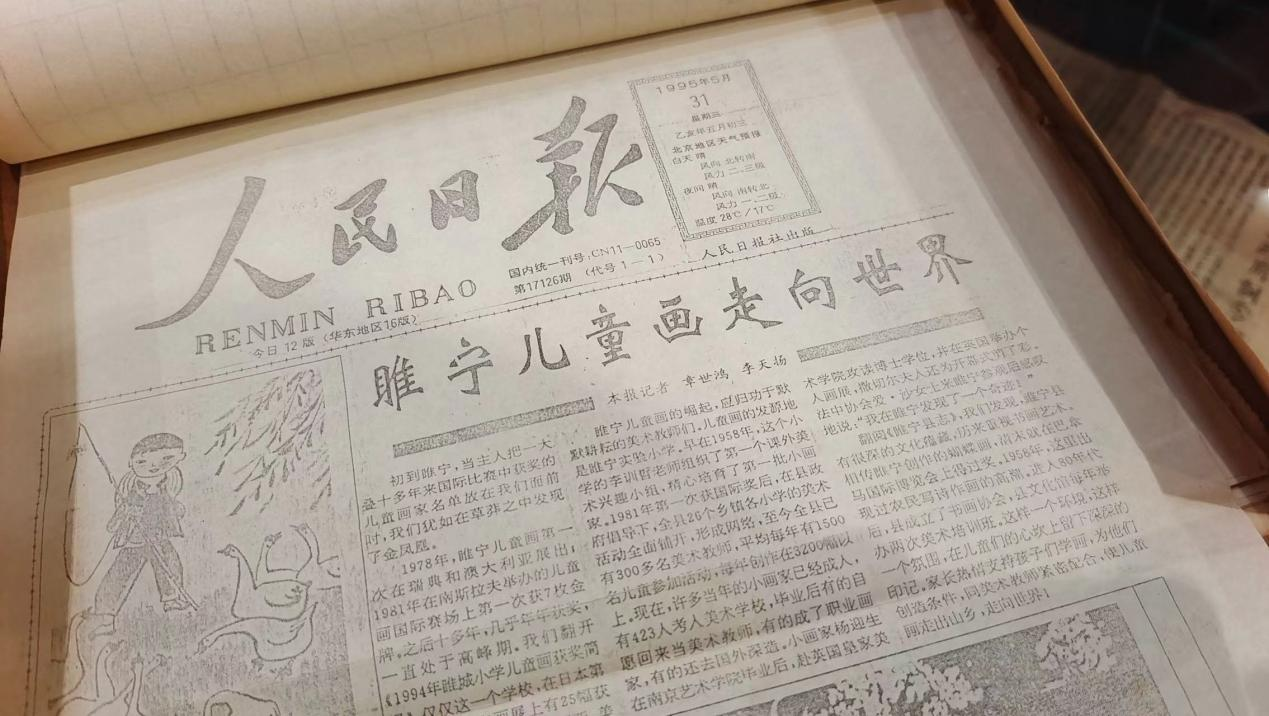 人民日报
RENMIN RIBAO
今日12版(华东地区16版)
国内统一刊号:CN11—0065
第17126期 (代号1—1)
1995年5月
31
星期三
乙亥年五月初三
北京地区天气预报
白天 晴
风向 北转南
风力 二、三级
夜间 晴
风向 南转北
风力 一、二级
温度 28℃/17℃
人民日报社出版
睢宁儿童画走向世界
本报记者 章世鸿 李天扬
初到睢宁,当主人把一大
叠十多年来国际比赛中获奖的
儿童画家名单放在我们面前
时,我们犹如在草莽之中发现
了金凤凰。
1978年,睢宁儿童画第一
次在瑞典和澳大利亚展出,
1981年在南斯拉夫举办的儿童
画国际赛场上第一次获7枚金
牌。之后十多年,几乎年年获奖,
一直处于高峰期。我们翻开
《1994年睢城小学儿童画获奖简
仅仅这一个学校,在日本第
画展上有25幅获
睢宁儿童画的崛起,应归功于默
默耕耘的美术教师们。儿童画的发源地
是睢宁实验小学。早在1958年,这个小
学的李训哲老师组织了第一个课外美
术兴趣小组,精心培育了第一批小画
家。1981年第一次获国际奖后,在县政
府倡导下,全县26个乡镇各小学的美术
活动全面铺开,形成网络,至今全县已
有300多名美术教师,平均每年有1500
名儿童参加活动,每年创作在3200幅以
上。现在,许多当年的小画家已经成人,
有423人考入美术学校,毕业后有的自
愿回来当美术教师,有的成了职业画
家,有的还去国外深造。小画家杨迎生
在南京艺术学院毕业后,赴英国皇家美
术学院攻读博士学位,并在英国举办个
人画展,撒切尔夫人还为开幕式剪了彩。
法中协会爱·沙女士来睢宁参观后感叹
地说:“我在睢宁发现了一个奇迹!”
翻阅《睢宁县志》,我们发现,睢宁县
有很深的文化蕴藏,历来重视书画艺术。
相传睢宁创作的蝴蝶画,清末就在巴拿
马国际博览会上得过奖。1956年,这里出
现过农民写诗作画的高潮,进入80年代
后,县成立了书画协会,县文化馆每年举
办两次美术培训班。这样一个环境,这样
一个氛围,在儿童们的心坎上留下深深的
印记,家长热情支持孩子们学画,为他们
创造条件,同美术教师紧密配合,使儿童
画走出山乡,走向世界!